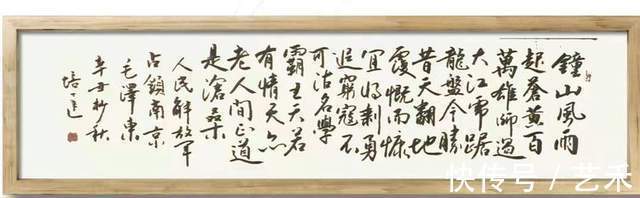 鐘山風雨
起蒼黄百
萬雄師過
大江虎踞
龍盤今勝
昔天翻地
覆慨而慷
宜將剩勇
追窮寇不
可沽名學
霸王天若
有情天亦
老人間正道
是滄桑
人民解放軍
占領南京
毛澤東
辛丑杪秋
培
快传号 / 艺禾